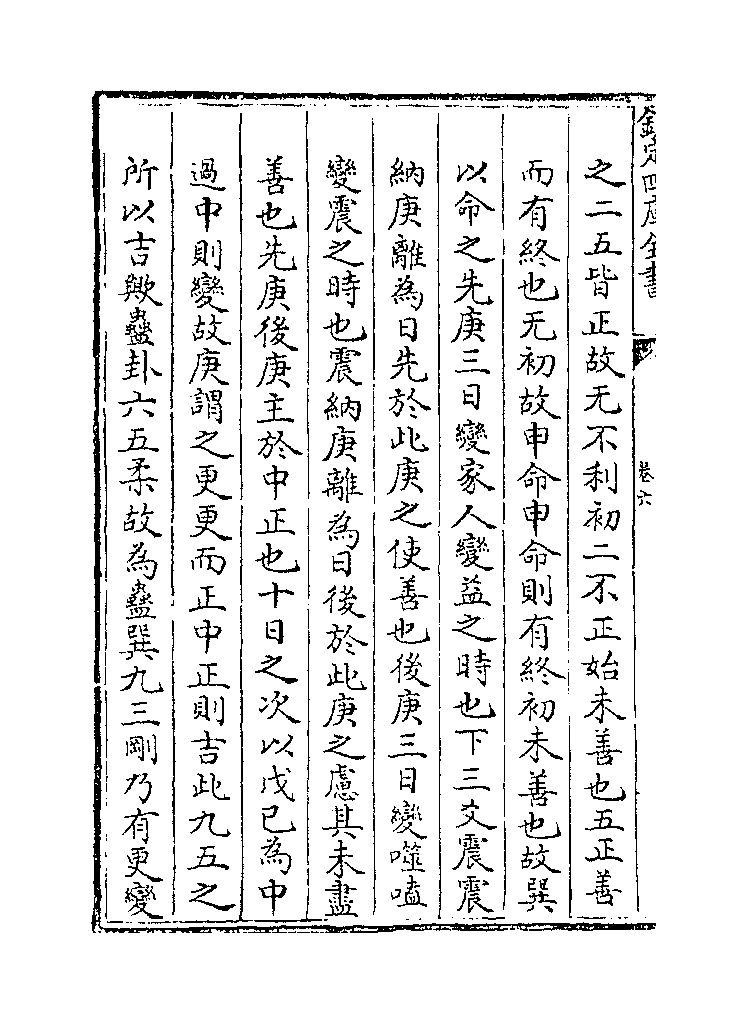 欽定四庫全書
卷六
之二五皆正故无不利初二不正始未善也五正善
而有終也无初故申命申命則有終初未善也故巽
以命之先庚三日變家人變益之時也下三爻震震
納庚離為日先於此庚之使善也後庚三日變噬嗑
變震之時也震納庚離為日後於此庚之慮其未盡
善也先庚後庚主於中正也十日之次以戊已為中
過中則變故庚謂之更更而正中正則吉此九五之
所以吉歟蠱卦六五柔故為蠱巽九三剛乃有更變